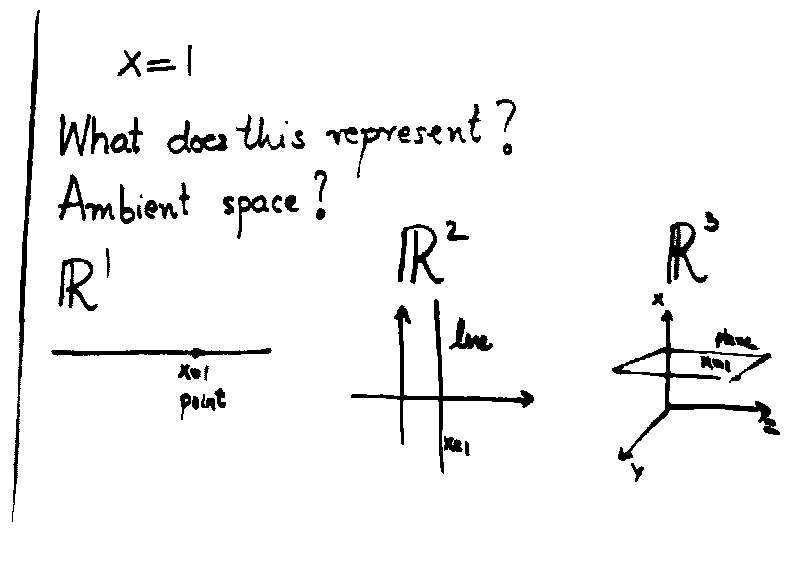 x=1
What does this represent?
Ambient space?
ℝ¹
x=1
point
ℝ²
line
x=1
ℝ³
x
plane
x=1
z
y